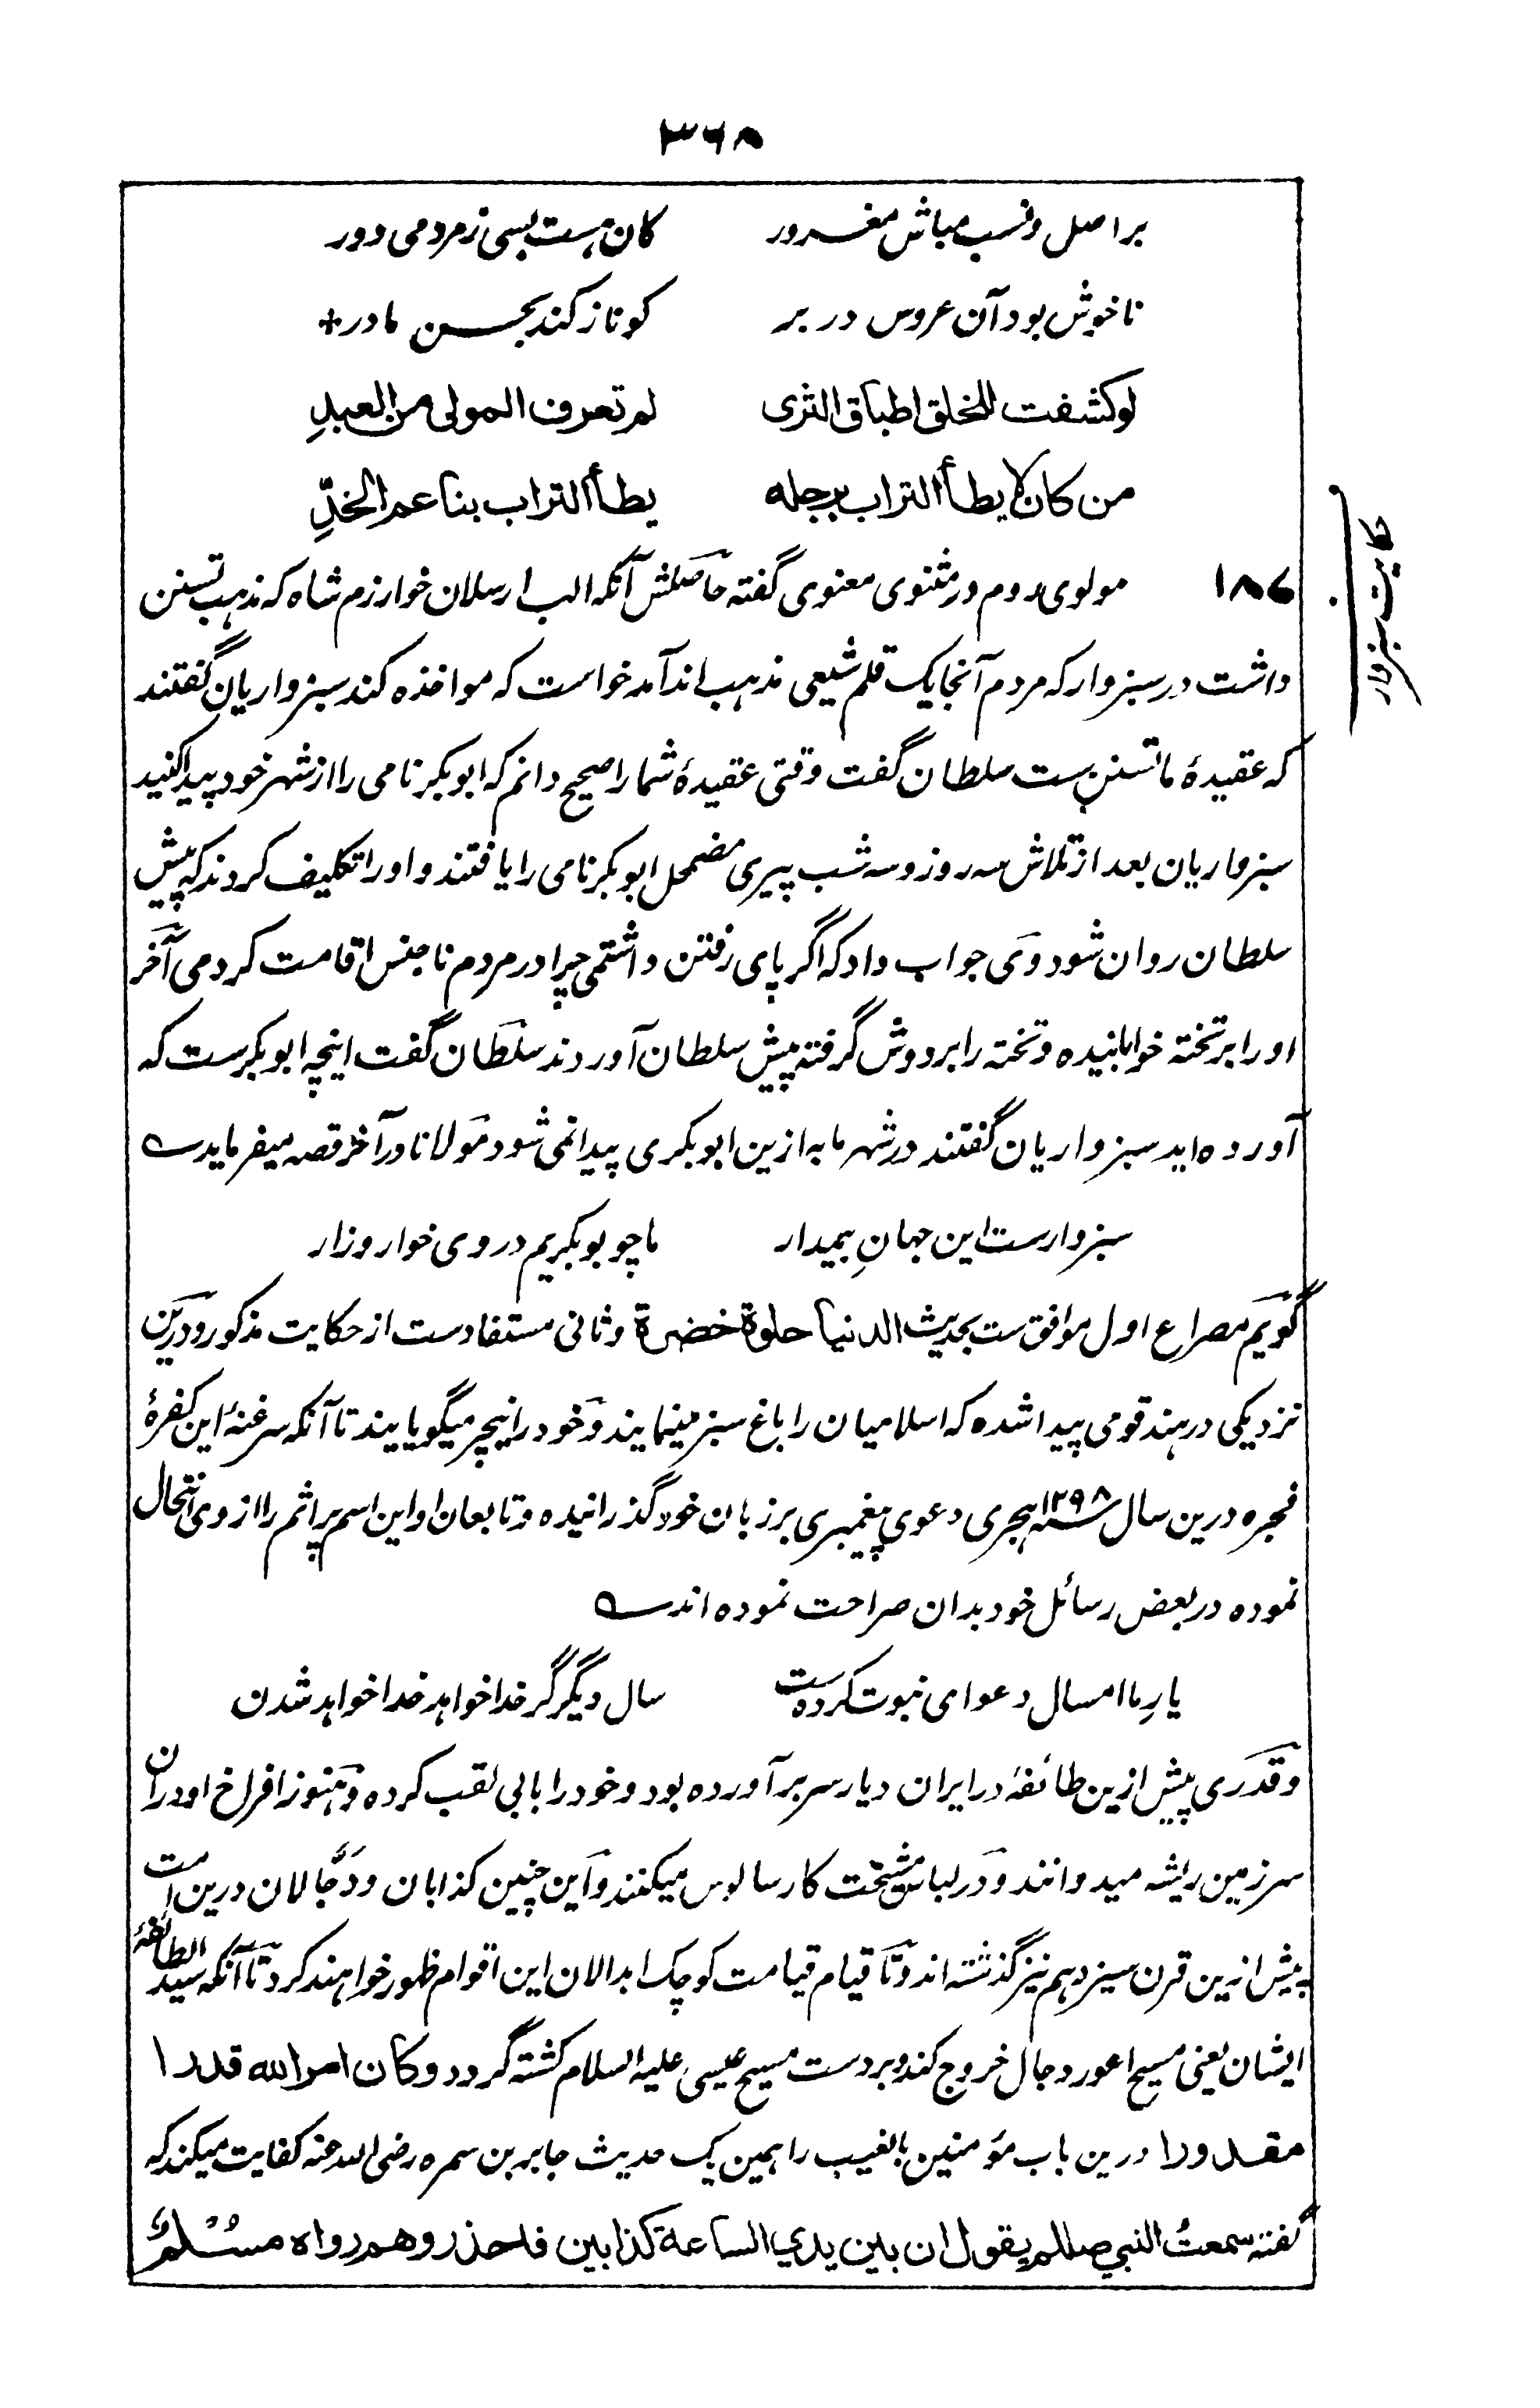 ۳۶۸
بر اصل و نسب مباش مغرور کان هست بسی ز مردمی دور
ناخوش بود آن عروس در بر کو ناز کند بحسن مادر
لو کشفت للخلق اطباق الثری لم تعرف المولی من العبدِ
من کان لا یطأ التراب برجله یطأ التراب بناعم الخدِّ
۱۸۶ مولوی روم در مثنوی معنوی گفته حاصلش آنکه الب ارسلان خوارزم شاه که مذهب تسنن
داشت در سبزوار که مردم آنجا یک قلم شیعی مذهب اند آمد خواست که مواخذه کند سبزواریان گفتند
که عقیدهٔ ما تسنن ست سلطان گفت وقتی عقیدهٔ شما را صحیح دانم که ابوبکر نامی را از شهر خود پیدا کنید
سبزواریان بعد از تلاش سه روز و سه شب پیری مضمحل ابوبکر نامی را یافتند و او را تکلیف کردند که پیش
سلطان روان شود وی جواب داد که اگر پای رفتن داشتمی چرا در مردم ناجنس اقامت کردمی آخر
او را بر تخته خوابانیده و تخته را بر دوش گرفته پیش سلطان آوردند سلطان گفت اینچه ابوبکرست که
آورده اید سبزواریان گفتند در شهر ما به ازین ابوبکری پیدا نمی شود مولانا در آخر قصه میفرماید
سبزوارست این جهانِ بیمدار ما چو بوبکریم در وی خوار و زار
گویم مصراع اول موافق ست بحدیث الدنیا حلوة خضرة و ثانی مستفادست از حکایت مذکور و درین
نزدیکی در هند قومی پیدا شده که اسلامیان را باغ سبز مینمایند و خود را نیچر میگویایند تا آنکه سرغنهٔ این کفرهٔ
فجره درین سال ۱۲۹۸ هجری دعوی پیغمبری بر زبان خود گذرانیده و تابعان او این اسم پر اثم را از وی انتحال
نموده در بعض رسائل خود بدان صراحت نموده اند
یارِ ما امسال دعوای نبوت کرده ست سال دیگر گر خدا خواهد خدا خواهد شدن
و قدری پیش ازین طائفهٔ در ایران دیار سر بر آورده بود و خود را بابی لقب کرده و هنوز افراخ او در آن
سرزمین ریشه میدوانند و در لباس مشیخت کار سالوس میکنند و این چنین کذابان و دجّالان درین امت
پیش ازین قرن سیزدهم نیز گذشته اند و تا قیام قیامت کوچک ابدالان این اقوام ظهور خواهند کرد تا آنکه سید الطائفهٔ
ایشان یعنی مسیح اعور دجال خروج کند و بر دست مسیح عیسیٰ علیه السلام کشته گردد وکان امر الله قدرا
مقدورا درین باب مؤمنین بالغیب را همین یک حدیث جابر بن سمره رضی الله عنه کفایت میکند که
گفته سمعتُ النبی صللم یقول ان بین یدی الساعة کذابین فاحذروهم رواه مسلم
حکایت سبزوار